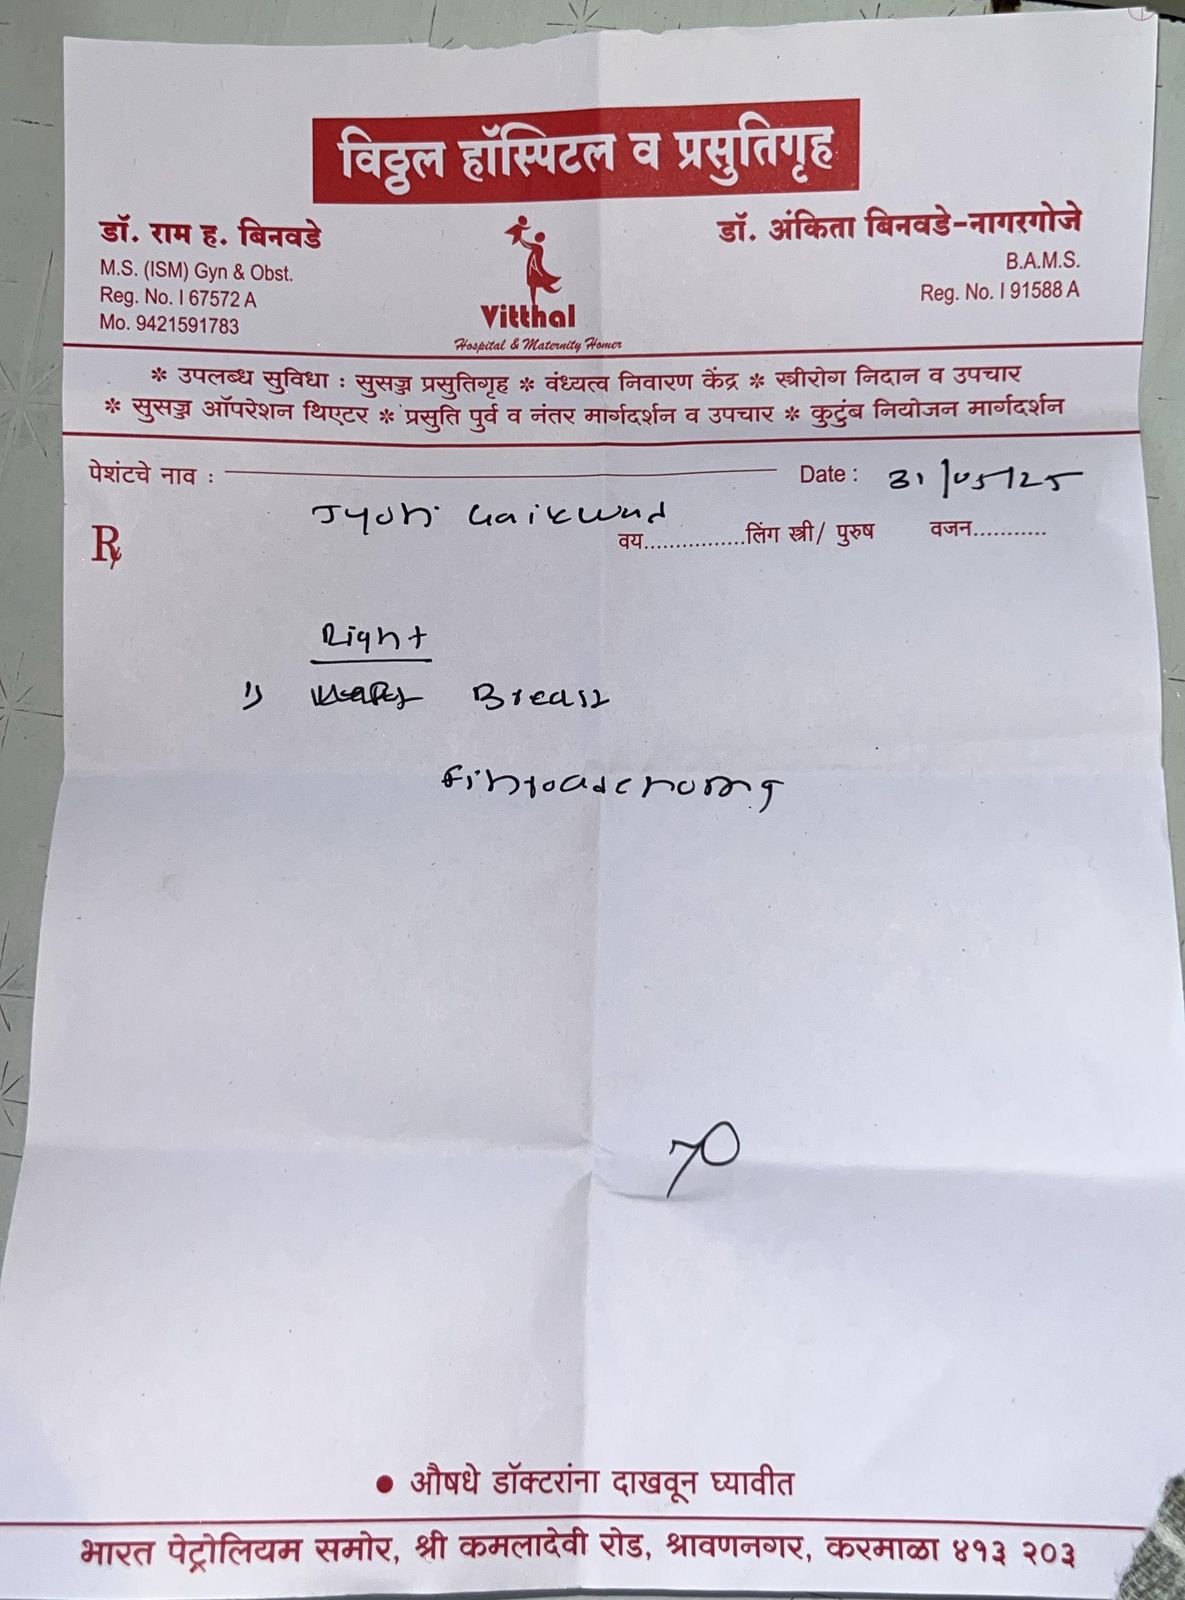 विठ्ठल हॉस्पिटल व प्रसुतिगृह
डॉ. राम ह. बिनवडे
M.S. (ISM) Gyn & Obst.
Reg. No. I 67572 A
Mo. 9421591783
Vitthal
Hospital & Maternity Homer
डॉ. अंकिता बिनवडे-नागरगोजे
B.A.M.S.
Reg. No. I 91588 A
* उपलब्ध सुविधा : सुसज्ज प्रसुतिगृह * वंध्यत्व निवारण केंद्र * स्त्रीरोग निदान व उपचार
* सुसज्ज ऑपरेशन थिएटर * प्रसुति पुर्व व नंतर मार्गदर्शन व उपचार * कुटुंब नियोजन मार्गदर्शन
पेशंटचे नाव : Date : 31/05/25
Jyoti Gaikwad
वय................लिंग स्त्री/ पुरुष वजन...........
Rx
Right
1) Breast
fibroadenoma
औषधे डॉक्टरांना दाखवून घ्यावीत
भारत पेट्रोलियम समोर, श्री कमलादेवी रोड, श्रावणनगर, करमाळा ४१३ २०३